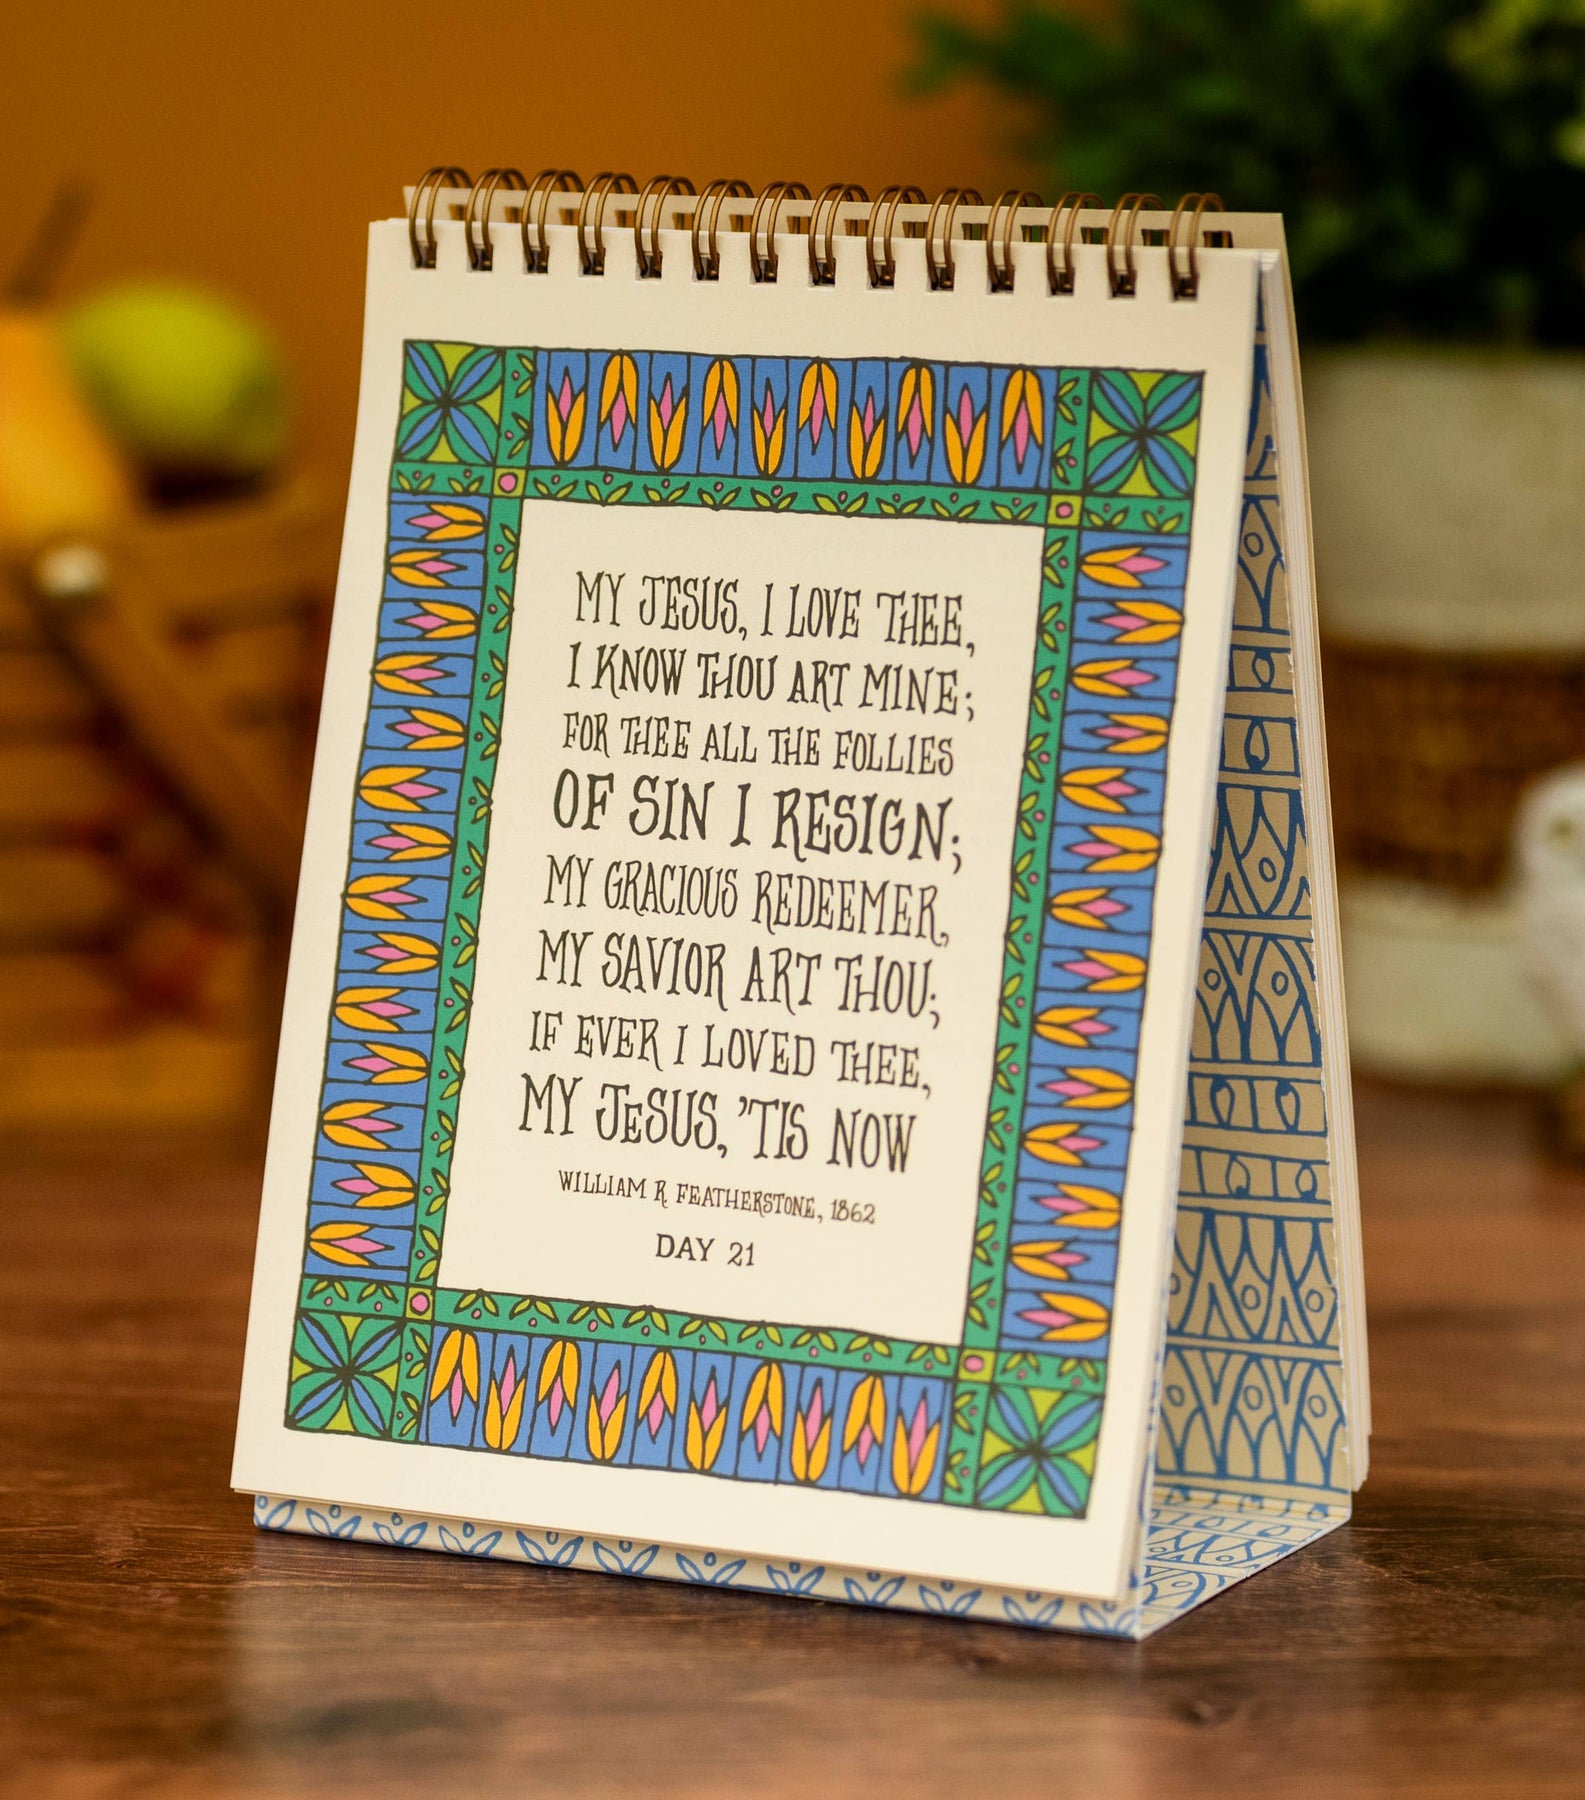 MY JESUS, I LOVE THEE,
I KNOW THOU ART MINE;
FOR THEE ALL THE FOLLIES
OF SIN I RESIGN;
MY GRACIOUS REDEEMER,
MY SAVIOR ART THOU;
IF EVER I LOVED THEE,
MY JESUS, 'TIS NOW
WILLIAM R FEATHERSTONE, 1862
DAY 21